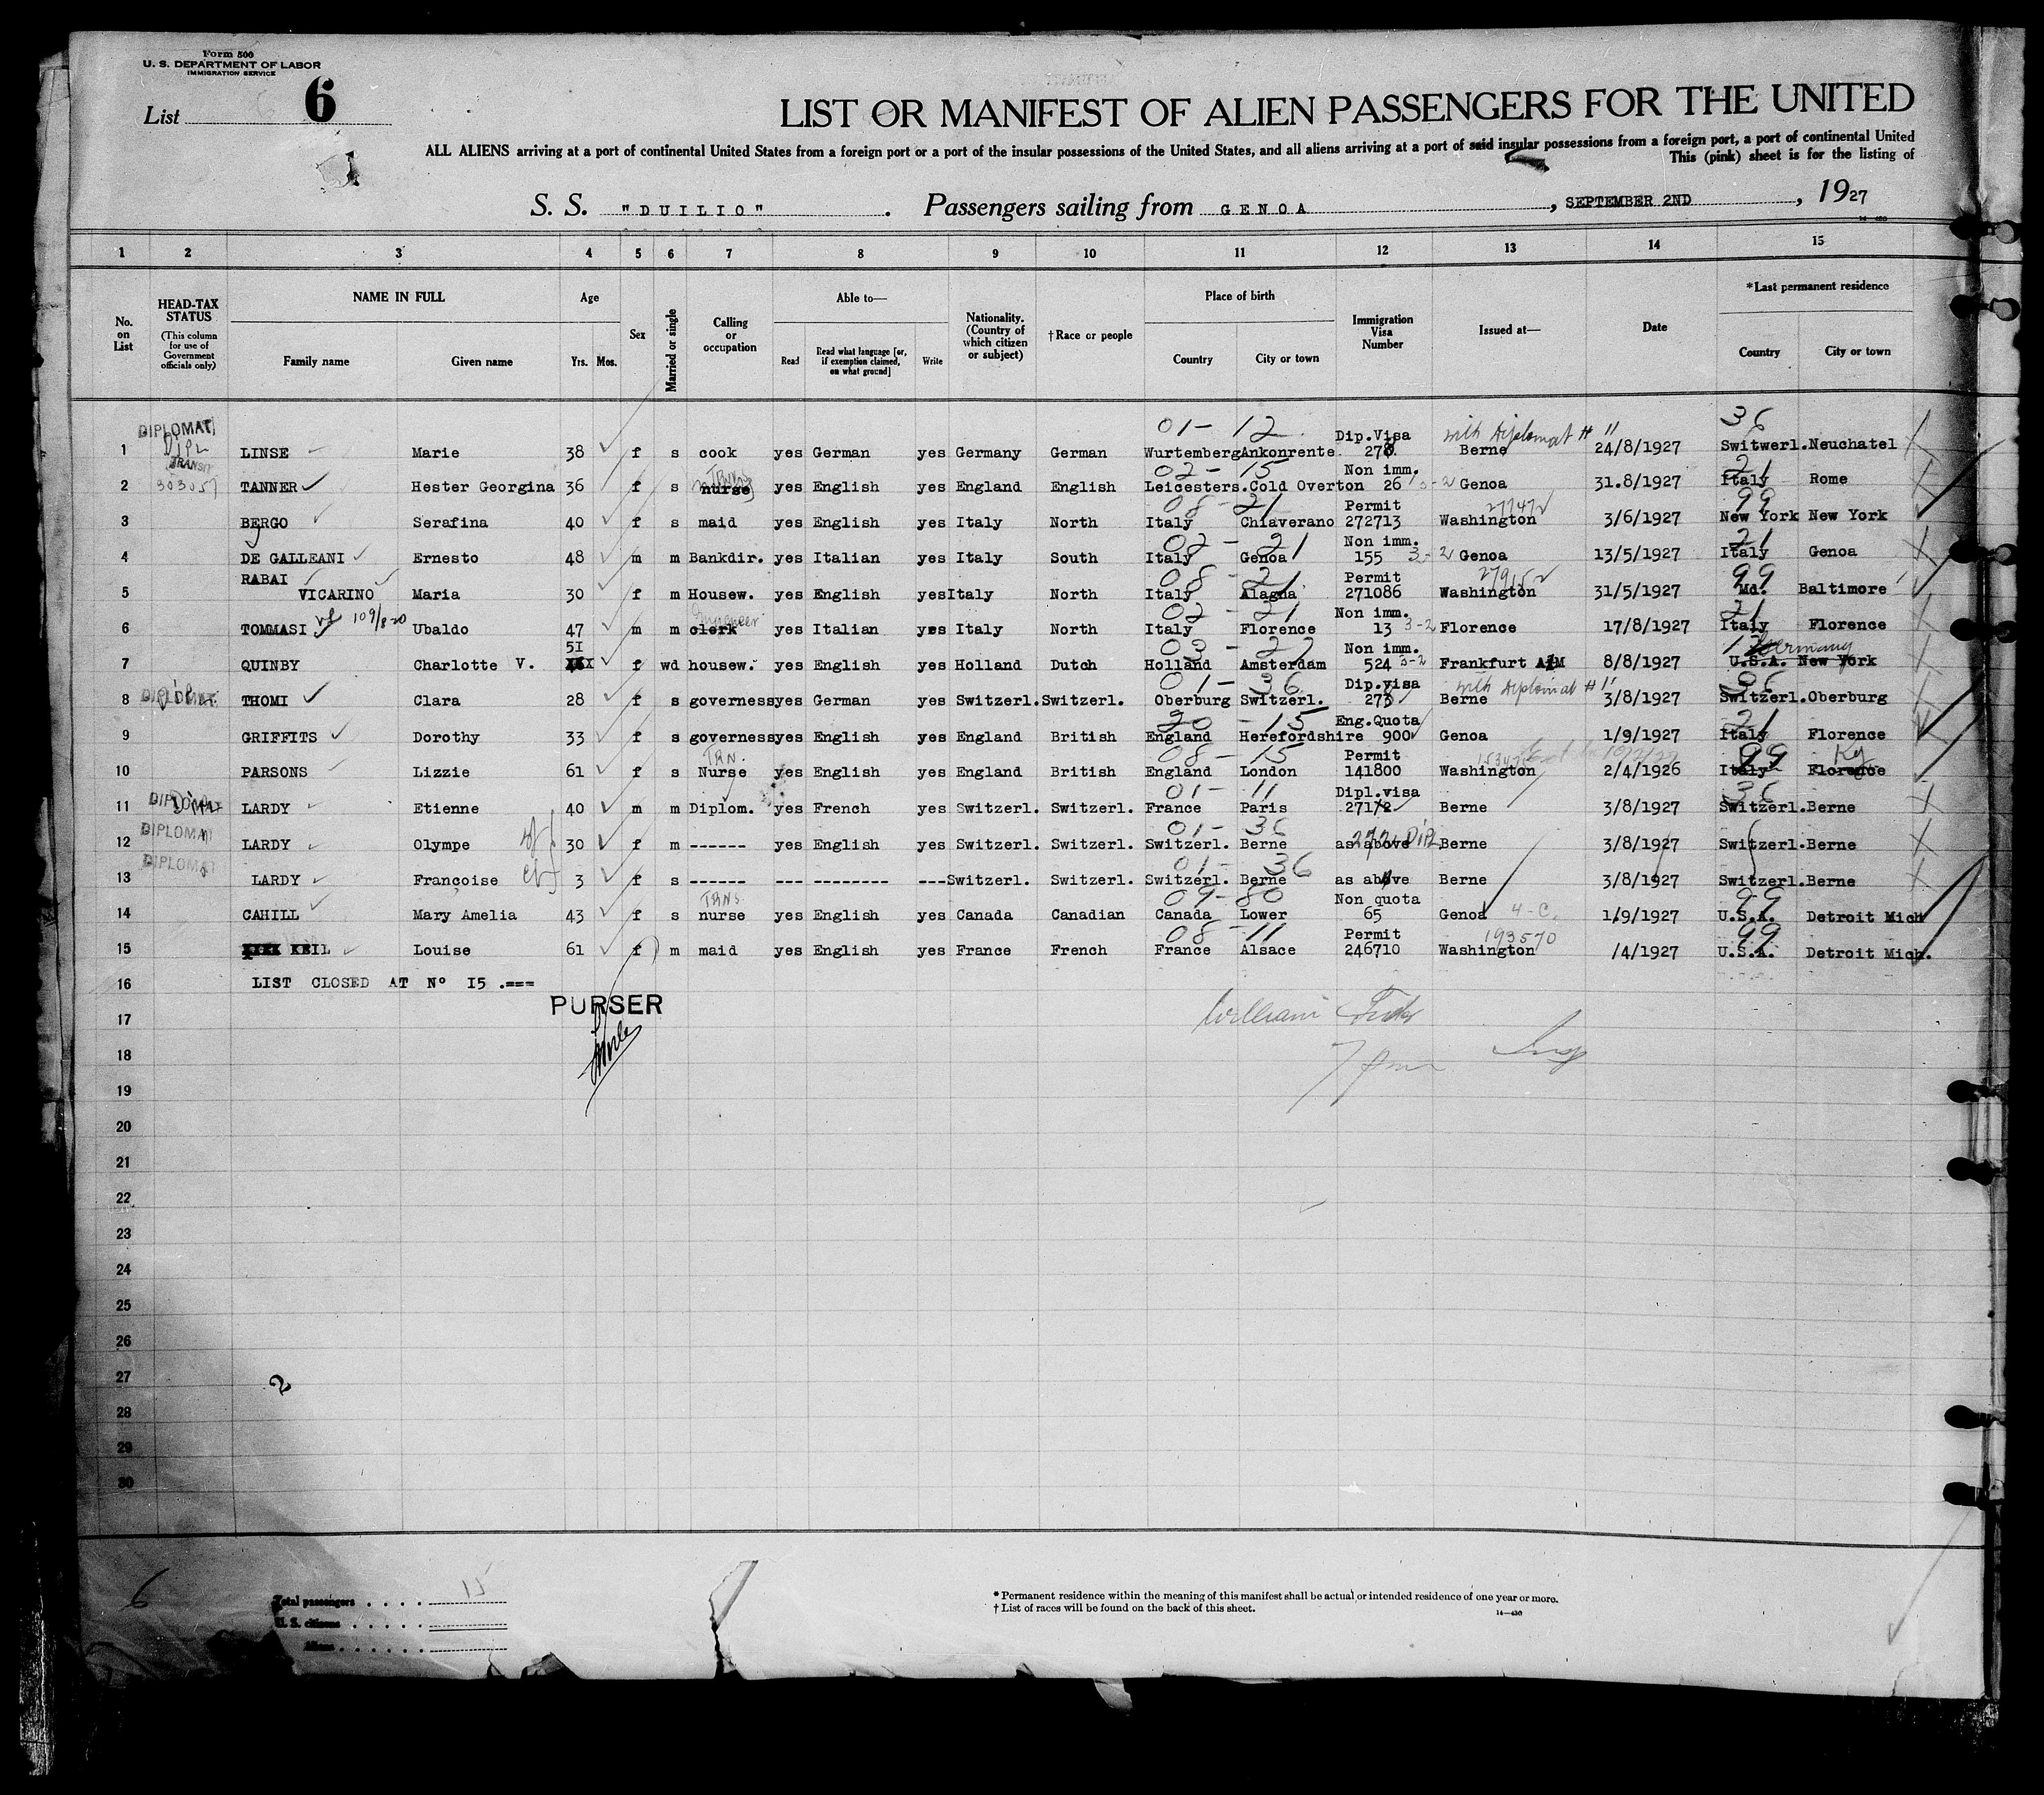 Form 500
U. S. DEPARTMENT OF LABOR
IMMIGRATION SERVICE
List 6
LIST OR MANIFEST OF ALIEN PASSENGERS FOR THE UNITED
ALL ALIENS arriving at a port of continental United States from a foreign port or a port of the insular possessions of the United States, and all aliens arriving at a port of said insular possessions from a foreign port, a port of continental United
This (pink) sheet is for the listing of
S. S. "DUILIO" . Passengers sailing from GENOA , SEPTEMBER 2ND , 1927
1 2 3 4 5 6 7 8 9 10 11 12 13 14 15
No. on List
HEAD-TAX STATUS (This column for use of Government officials only)
NAME IN FULL Family name Given name
Age Yrs. Mos.
Sex
Married or single
Calling or occupation
Able to— Read Read what language [or, if exemption claimed, on what ground] Write
Nationality. (Country of which citizen or subject)
†Race or people
Place of birth Country City or town
Immigration Visa Number
Issued at—
Date
*Last permanent residence Country City or town
DIPLOMAT 01 - 12 Dip.Visa with Diplomat # 11 36
1 Dipl LINSE Marie 38 f s cook yes German yes Germany German Wurtemberg Ankonrente 278 Berne 24/8/1927 Switwerl. Neuchatel
TRANSIT 02 - 15 Non imm. 21
2 303057 TANNER Hester Georgina 36 f s nurse yes English yes England English Leicesters. Cold Overton 26 3-2 Genoa 31.8/1927 Italy Rome
08 - 21 Permit 99
3 BERGO Serafina 40 f s maid yes English yes Italy North Italy Chiaverano 272713 Washington 3/6/1927 New York New York
02 - 21 Non imm. 21
4 DE GALLEANI Ernesto 48 m m Bankdir. yes Italian yes Italy South Italy Genoa 155 3-2 Genoa 13/5/1927 Italy Genoa
RABAI 08 - 21 Permit 99
5 VICARINO Maria 30 f m Housew. yes English yes Italy North Italy Alagna 271086 Washington 31/5/1927 Md. Baltimore
109/820 Engineer 02 - 21 Non imm. 21
6 TOMMASI Ubaldo 47 m m clerk yes Italian yes Italy North Italy Florence 13 3-2 Florence 17/8/1927 Italy Florence
51 03 - 27 Non imm. 12 Germany
7 QUINBY Charlotte V. f wd housew. yes English yes Holland Dutch Holland Amsterdam 524 3-2 Frankfurt A/M 8/8/1927 U.S.A. New York
DIPLOMAT 01 - 36 Dip.visa with Diplomat # 11 36
8 THOMI Clara 28 f s governess yes German yes Switzerl. Switzerl. Oberburg Switzerl. 273 Berne 3/8/1927 Switzerl. Oberburg
20 - 15 Eng.Quota 21
9 GRIFFITS Dorothy 33 f s governess yes English yes England British England Herefordshire 900 Genoa 1/9/1927 Italy Florence
TRN. 08 - 15 Permit 99 Ky
10 PARSONS Lizzie 61 f s Nurse yes English yes England British England London 141800 Washington 2/4/1926 Italy Florence
DIPLOMAT 01 - 11 Dipl.visa 36
11 LARDY Etienne 40 m m Diplom. yes French yes Switzerl. Switzerl. France Paris 271/2 Berne 3/8/1927 Switzerl. Berne
DIPLOMAT 01 - 36 272 DIPL
12 LARDY Olympe 30 f m ------ yes English yes Switzerl. Switzerl. Switzerl. Berne as above Berne 3/8/1927 Switzerl. Berne
DIPLOMAT 01 - 36
13 LARDY Françoise 3 f s ------ --- -------- --- Switzerl. Switzerl. Switzerl. Berne as above Berne 3/8/1927 Switzerl. Berne
TRNS 09 - 80 Non quota 99
14 CAHILL Mary Amelia 43 f s nurse yes English yes Canada Canadian Canada Lower 65 Genoa 4-C. 1/9/1927 U.S.A. Detroit Mich
08 - 11 Permit 193570 99
15 KEIL Louise 61 f m maid yes English yes France French France Alsace 246710 Washington /4/1927 U.S.A. Detroit Mich.
16 LIST CLOSED AT N° 15 .===
PURSER
17 William
18 Insp
19
20
21
22
23
24
25
26
27 2
28
29
30
6
Total passengers . . . . 15
U. S. citizens . . . . .
Aliens . . . . . .
* Permanent residence within the meaning of this manifest shall be actual or intended residence of one year or more.
† List of races will be found on the back of this sheet.
14—430